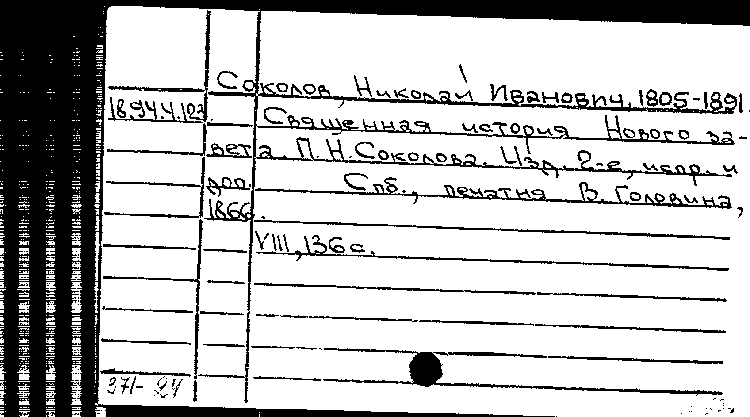 Соколов, Николай Иванович, 1805-1891.
18.94.4.103. Священная история Нового за-
вета. П. Н. Соколова. Изд. 2-е, испр. и
доп. Спб., печатня В. Головина,
1866.
VIII, 136 с.
371- 24